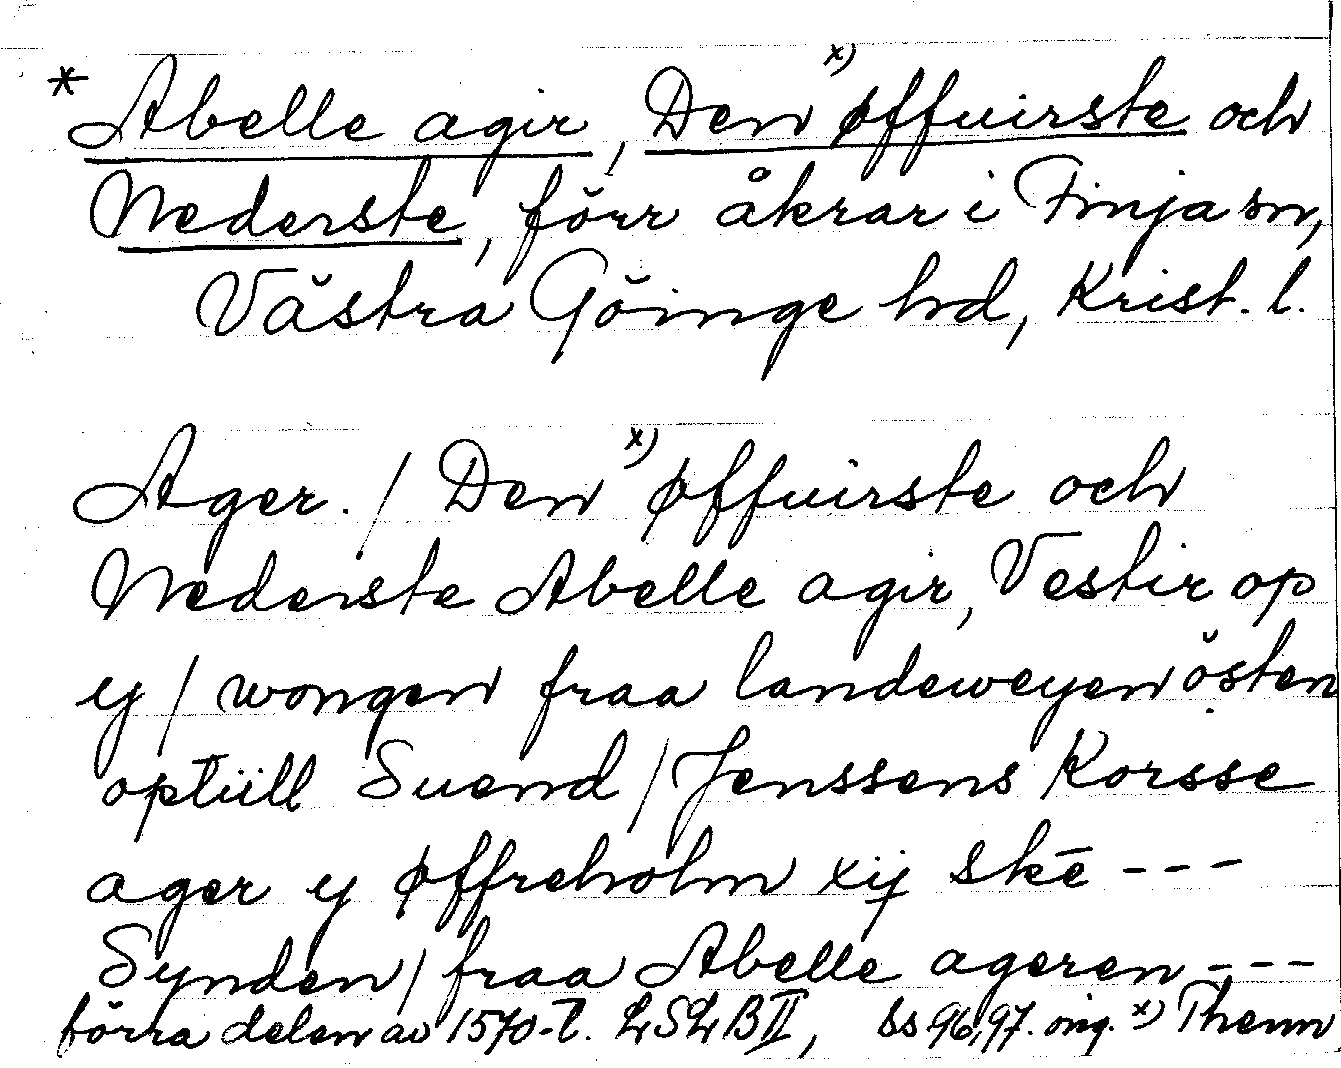 * Abelle agir, Den x) øffuirste och
Nederste, förr åkrar i Finja sn,
Västra Göinge hd, Krist. l.
Ager. / Den x) øffuirste och
Nederste Abelle agir, Vestir op
ij / wongen fraa landeweyen östen
optiill Suend / Jenssens Korsse
ager ij øffreholm xij skē ---
Synden / fraa Abelle ageren ---
förra delen av 1570-t. LSLB II, ss 96,97. orig. x) Thenn